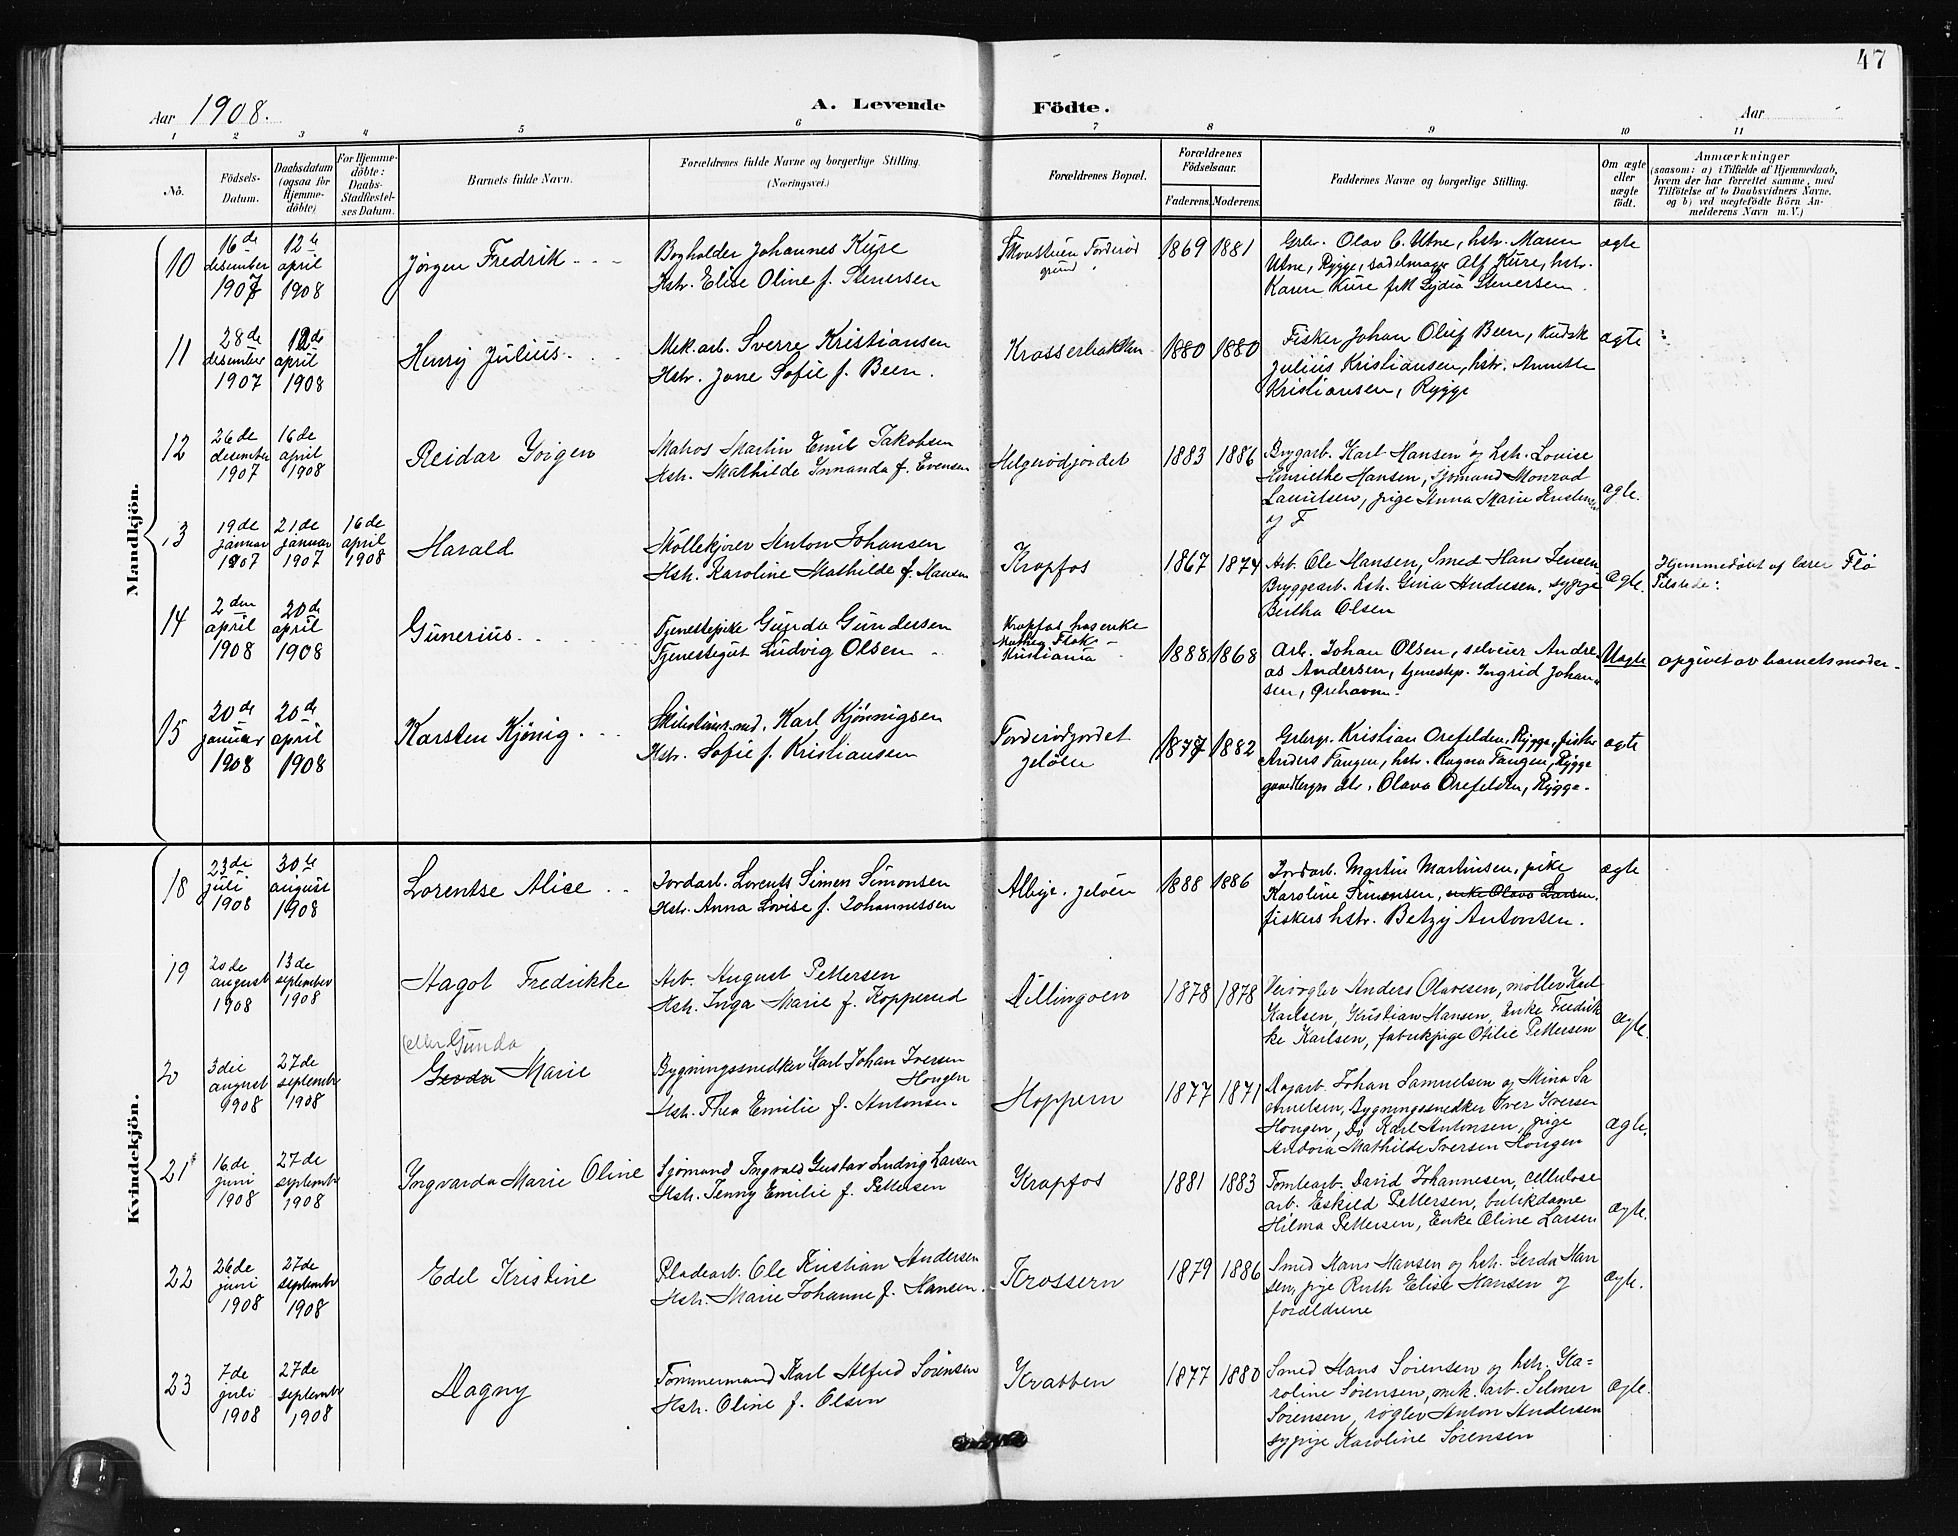 47
Aar 1908.
A. Levende Födte.
Aar
1 2 3 4 5 6 7 8 9 10 11
No.
Födsels-
Datum.
Daabsdatum
(ogsaa för
Hjemme-
döbte)
For Hjemme-
döbte:
Daabs-
Stadfæstel-
ses Datum.
Barnets fulde Navn.
Forældrenes fulde Navne og borgerlige Stilling.
(Næringsvei.)
Forældrenes Bopæl.
Forældrenes
Födselsaar.
Faderens. Moderens.
Faddernes Navne og borgerlige Stilling.
Om ægte
eller
uægte
födt.
Anmærkninger
(saasom: a) i Tilfælde af Hjemmedaab,
hvem der har forrettet samme, med
Tilföielse af to Daabsvidners Navne,
og b) ved uægtefödte Börn An-
melderens Navn m. V.)
Mandkjön.
10
16de
desember
1907
12te
april
1908
Jørgen Fredrik
Bogholder Johannes Kure
Hstr. Elise Oline f. Stenersen
Skovstuen Torderød
grund
1869 1881
Grbr. Olav C. Utne, hstr. Maren
Utne, Rygge, sadelmager Alf Kure, hstr.
Karen Kure frk Lydia Stenersen.
ægte
11
28de
desember
1907
12de
april
1908
Henry Julius
Mek. arb. Sverre Kristiansen
Hstr. Jane Sofie f. Been.
Krosserbakken
1880 1880
Fisker Johan Oluf Been, Kudsk
Julius Kristiansen, hstr. Annette
Kristiansen, Rygge
ægte
12
26de
desember
1907
16de
april
1908
Reidar Yørgen
Matros Martin Emil Jakobsen
Hstr. Mathilde Ynnanda f. Evensen
Helgerødjordet
1883 1886
Brygarb. Karl Hansen og hstr. Lovise
Henriethe Hansen, Sjømand Monrad
Lauritsen, pige Anna Marie Kristensen
og F
ægte.
13
19de
januar
1907
21de
januar
1907
16de
april
1908
Harald
Møllekjører Anton Johansen
Hstr. Karoline Mathilde f. Hansen
Krapfos
1867 1874
Arb. Ole Hansen, Smed Hans Jensen
Bryggearb. hstr. Gina Andresen, sypige
Bertha Olsen
ægte.
Hjemmedøbt af lærer Flø
Tilstede:
14
2den
april
1908
20de
april
1908
Gunerius
Tjenestepike Gunda Gundersen
Tjenestegut Ludvig Olsen
Krapfos hos enke
Mathea Flak
Kristiania
1888 1868
Arb. Johan Olsen, selveier Andre-
as Andersen, tjenestep. Ingrid Johan-
sen, Ørehavn.
Uægte
opgivet av barnets moder.
15
20de
januar
1908
20de
april
1908
Karsten Kjønig
Karl Kjønnigsen
Hstr. Sofie f. Kristiansen
Torderødjordet
Jeløen
1877 1882
Grbrgr. Kristian Orefelden, Rygge, fisker
Anders Fangen, hstr. Ragna Fangen, Rygge
gaardbrgrs dtr. Olava Orefelden, Rygge.
ægte
Kvindekjön.
18
23de
juli
1908
30te
august
1908
Lorentse Alice
Jordarb. Lorents Simen Simonsen
Hstr. Anna Lovise f. Johannessen
Alby. Jeløen
1888 1886
Jordarb. Martin Martinsen, pike
Karoline Simensen, enke Olava Larsen.
fiskers hstr. Betzy Antonsen.
ægte
19
20de
august
1908
13de
september
1908
Hagot Fredrikke
Arb. August Pettersen
Hstr. Inga Marie f. Kopperud
Dillingoen
1878 1878
Veivogter Anders Olavesen, møller Karl
Karlsen, Kristian Hansen, Enke Fredrik
ke Karlsen, fabrikpige Otilie Pettersen
ægte.
20
3die
august
1908
27de
september
1908
(eller Gunda
Gerda Marie
Bygningssnedker Karl Johan Iversen
Hougen
Hstr. Thea Emilie f. Antonsen.
Hoppern
1877 1871
Dagarb. Johan Samuelsen og Mina Sa
muelsen, Bygningssnedker Iver Iversen
Hougen, Do Karl Antonsen, pige
Andvia Mathilde Iversen Hougen
ægte.
21
16de
juni
1908
27de
september
1908
Yngvarda Marie Oline
Sjømand Yngvald Gustav Ludvig Larsen
Hstr. Jenny Emilie f. Pettersen
Krapfos
1881 1883
Tomtearb. David Johannesen, cellulose
arb. Eskild Pettersen, butikdame
Hilma Pettersen, Enke Oline Larsen
ægte.
22
26de
juni
1908
27de
september
1908
Edel Kristine
Pladearb. Ole Kristian Andersen
Hstr. Marie Johanne f. Hansen.
Krossern
1879 1886
Smed Hans Hansen og hstr. Gerda Han
sen, pige Ruth Elise Hansen og
forældrene
ægte.
23
7de
juli
1908
27de
september
1908
Dagny
Tømmermand Karl Alfred Sørensen
Hstr. Oline f. Olsen
Krabben
1877 1880
Smed Hans Sørensen og hstr. Ka-
roline Sørensen, mek. arb. Selmer
Sørensen, røgter Anton Andersen
sypige Karoline Sørensen
ægte.